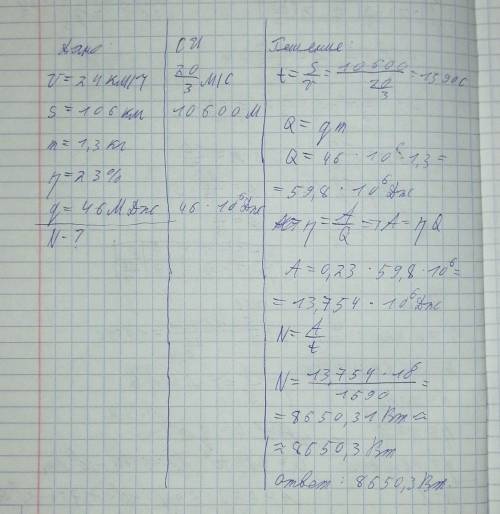 Дано:
V = 24 км/ч
S = 106 км
m = 1,3 кг
η = 23%
q = 46 МДж
N - ?
СИ
20/3 м/с
10600 м
46 · 10⁶ Дж
Решение:
t = S/V = 10600/(20/3) = 1590 с
Q = qm
Q = 46 · 10⁶ · 1,3 =
= 59,8 · 10⁶ Дж
η = A/Q ⇒ A = ηQ
A = 0,23 · 59,8 · 10⁶ =
= 13,754 · 10⁶ Дж
N = A/t
N = 13,754 · 10⁶/1590 =
= 8650,31 Вт ≈
≈ 8650,3 Вт
Ответ: 8650,3 Вт.